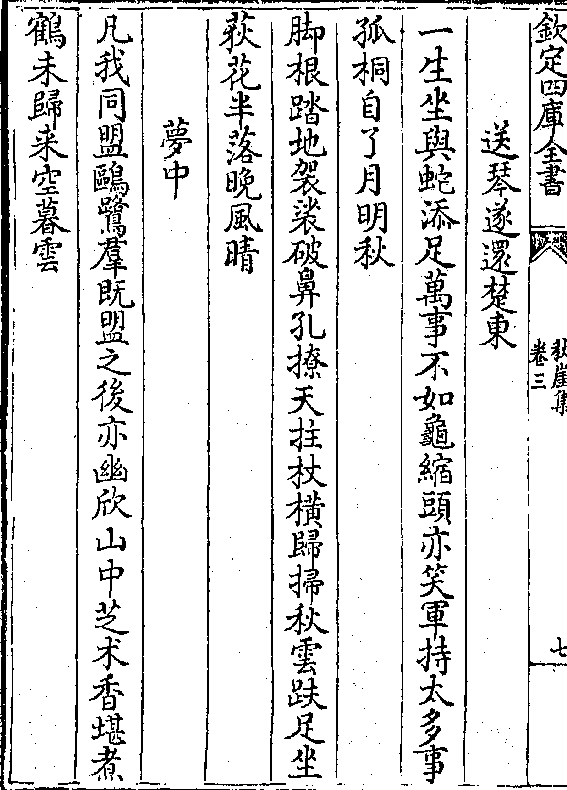 欽定四庫全書
秋崖集
卷三
七
送琴遂還楚東
一生坐與蛇添足萬事不如龜縮頭亦笑軍持太多事
孤桐自了月明秋
脚根踏地袈裟破鼻孔撩天拄杖橫歸掃秋雲趺足坐
荻花半落晚風晴
夢中
凡我同盟鷗鷺羣既盟之後亦幽欣山中芝术香堪煮
鶴未歸来空暮雲